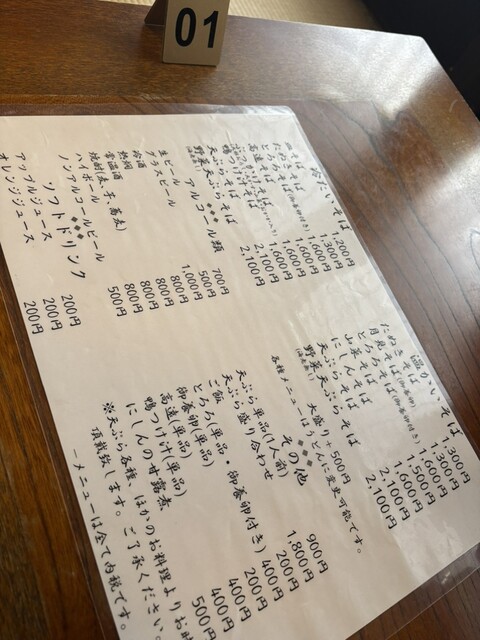 01
冷たいそば
1,200円
たぬきそば(御養卵付き) 1,300円
とろろそば 1,600円
高遠そば
鴨つけそば
天ぷらそば 2,100円
野菜天ぷらそば 2,100円
アルコール類
生ビール 700円
グラスビール 500円
冷酒 1,000円
熱燗 800円
常温酒 800円
焼酎(麦、芋、蕎麦)
ハイボール 800円
ノンアルコールビール 500円
ソフトドリンク
200円
アップルジュース 200円
オレンジジュース 200円
温かいそば
1,300円
たぬきそば(御養卵付き) 1,300円
月見そば(御養卵付き) 1,300円
とろろそば 1,600円
山菜そば 1,500円
にしんそば 1,600円
天ぷらそば 2,100円
野菜天ぷらそば 2,100円
大盛り+500円
各種メニューはうどんに変更可能です。
その他
天ぷら単品(1人前) 900円
天ぷら盛り合わせ 1,800円
ご飯 200円
とろろ(単品・御養卵付き) 400円
御養卵(単品) 200円
高遠(単品) 400円
鴨つけ汁(単品) 400円
にしんの甘露煮 500円
※天ぷら各種、ほかのお料理よりお時
頂戴致します。ご了承ください。
ーメニューは全て内税です。